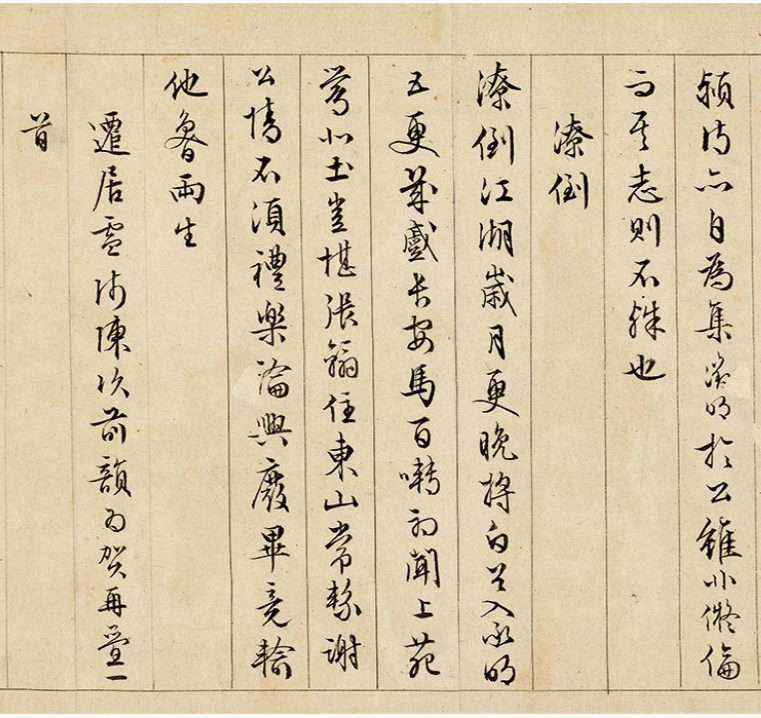 為集於公雖小倫
而其志則不殊也
潦倒
潦倒江湖歲月更晚將白首入承明
五更幾蹙長安馬百囀初聞上苑
鶯北土豈堪張翰住東山常繫謝
公情不須禮樂論興廢畢竟輸
他魯兩生
遷居盧師陳次前韻為賀再疊一
首